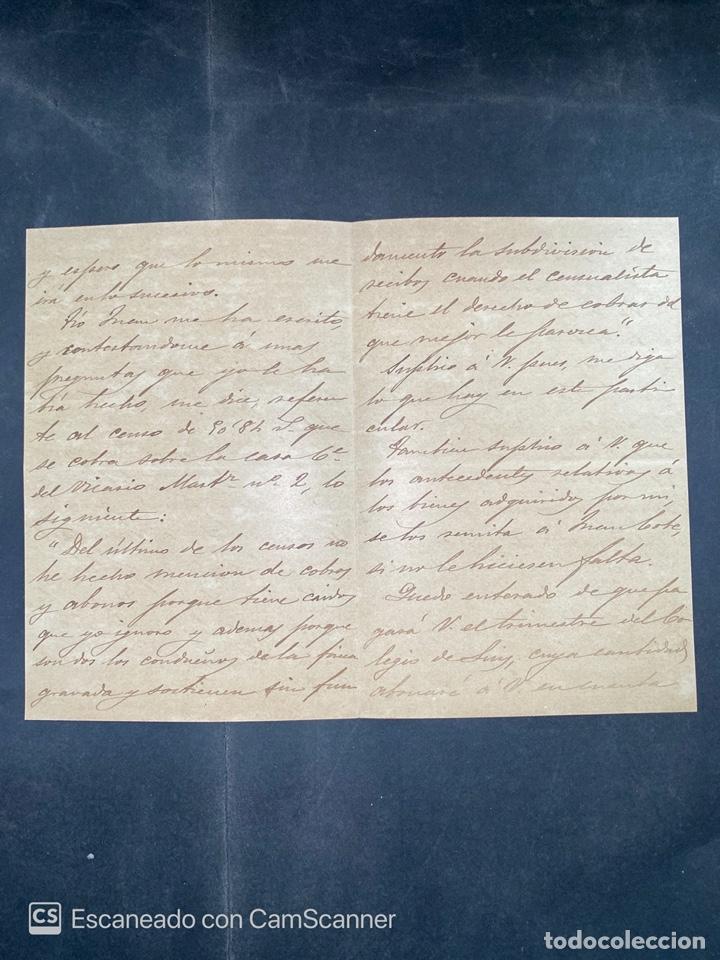 y espero que lo mismo me
irá en lo sucesivo.
Tío Juan me ha escrito,
y contestandome á unas
preguntas que yo le ha
bía hecho, me dice, referen
te al censo de 90'84 que
se cobra sobre la casa C.e
del Vicario Mart.z nº 2, lo
siguiente:
"Del último de los censos no
he hecho mencion de cobros
y abonos porque tiene caidos
que yo ignoro y ademas porque
son dos los condueños de la finca
gravada y sostienen sin fun
damento la subdivision de
recibos cuando el censualista
tiene el derecho de cobrar del
que mejor le parezca."
Suplico á V. pues, me diga
lo que hay en este parti
cular.
Tambien suplico á V. que
los antecedentes relativos á
los bienes adquiridos por mi,
se los remita á Juan
si no le hiciesen falta.
Quedo enterado de que pa
gará V. el trimestre del Co
legio de Luis, cuya cantidad
abonaré á V. en cuenta
CS Escaneado con CamScanner
todocoleccion